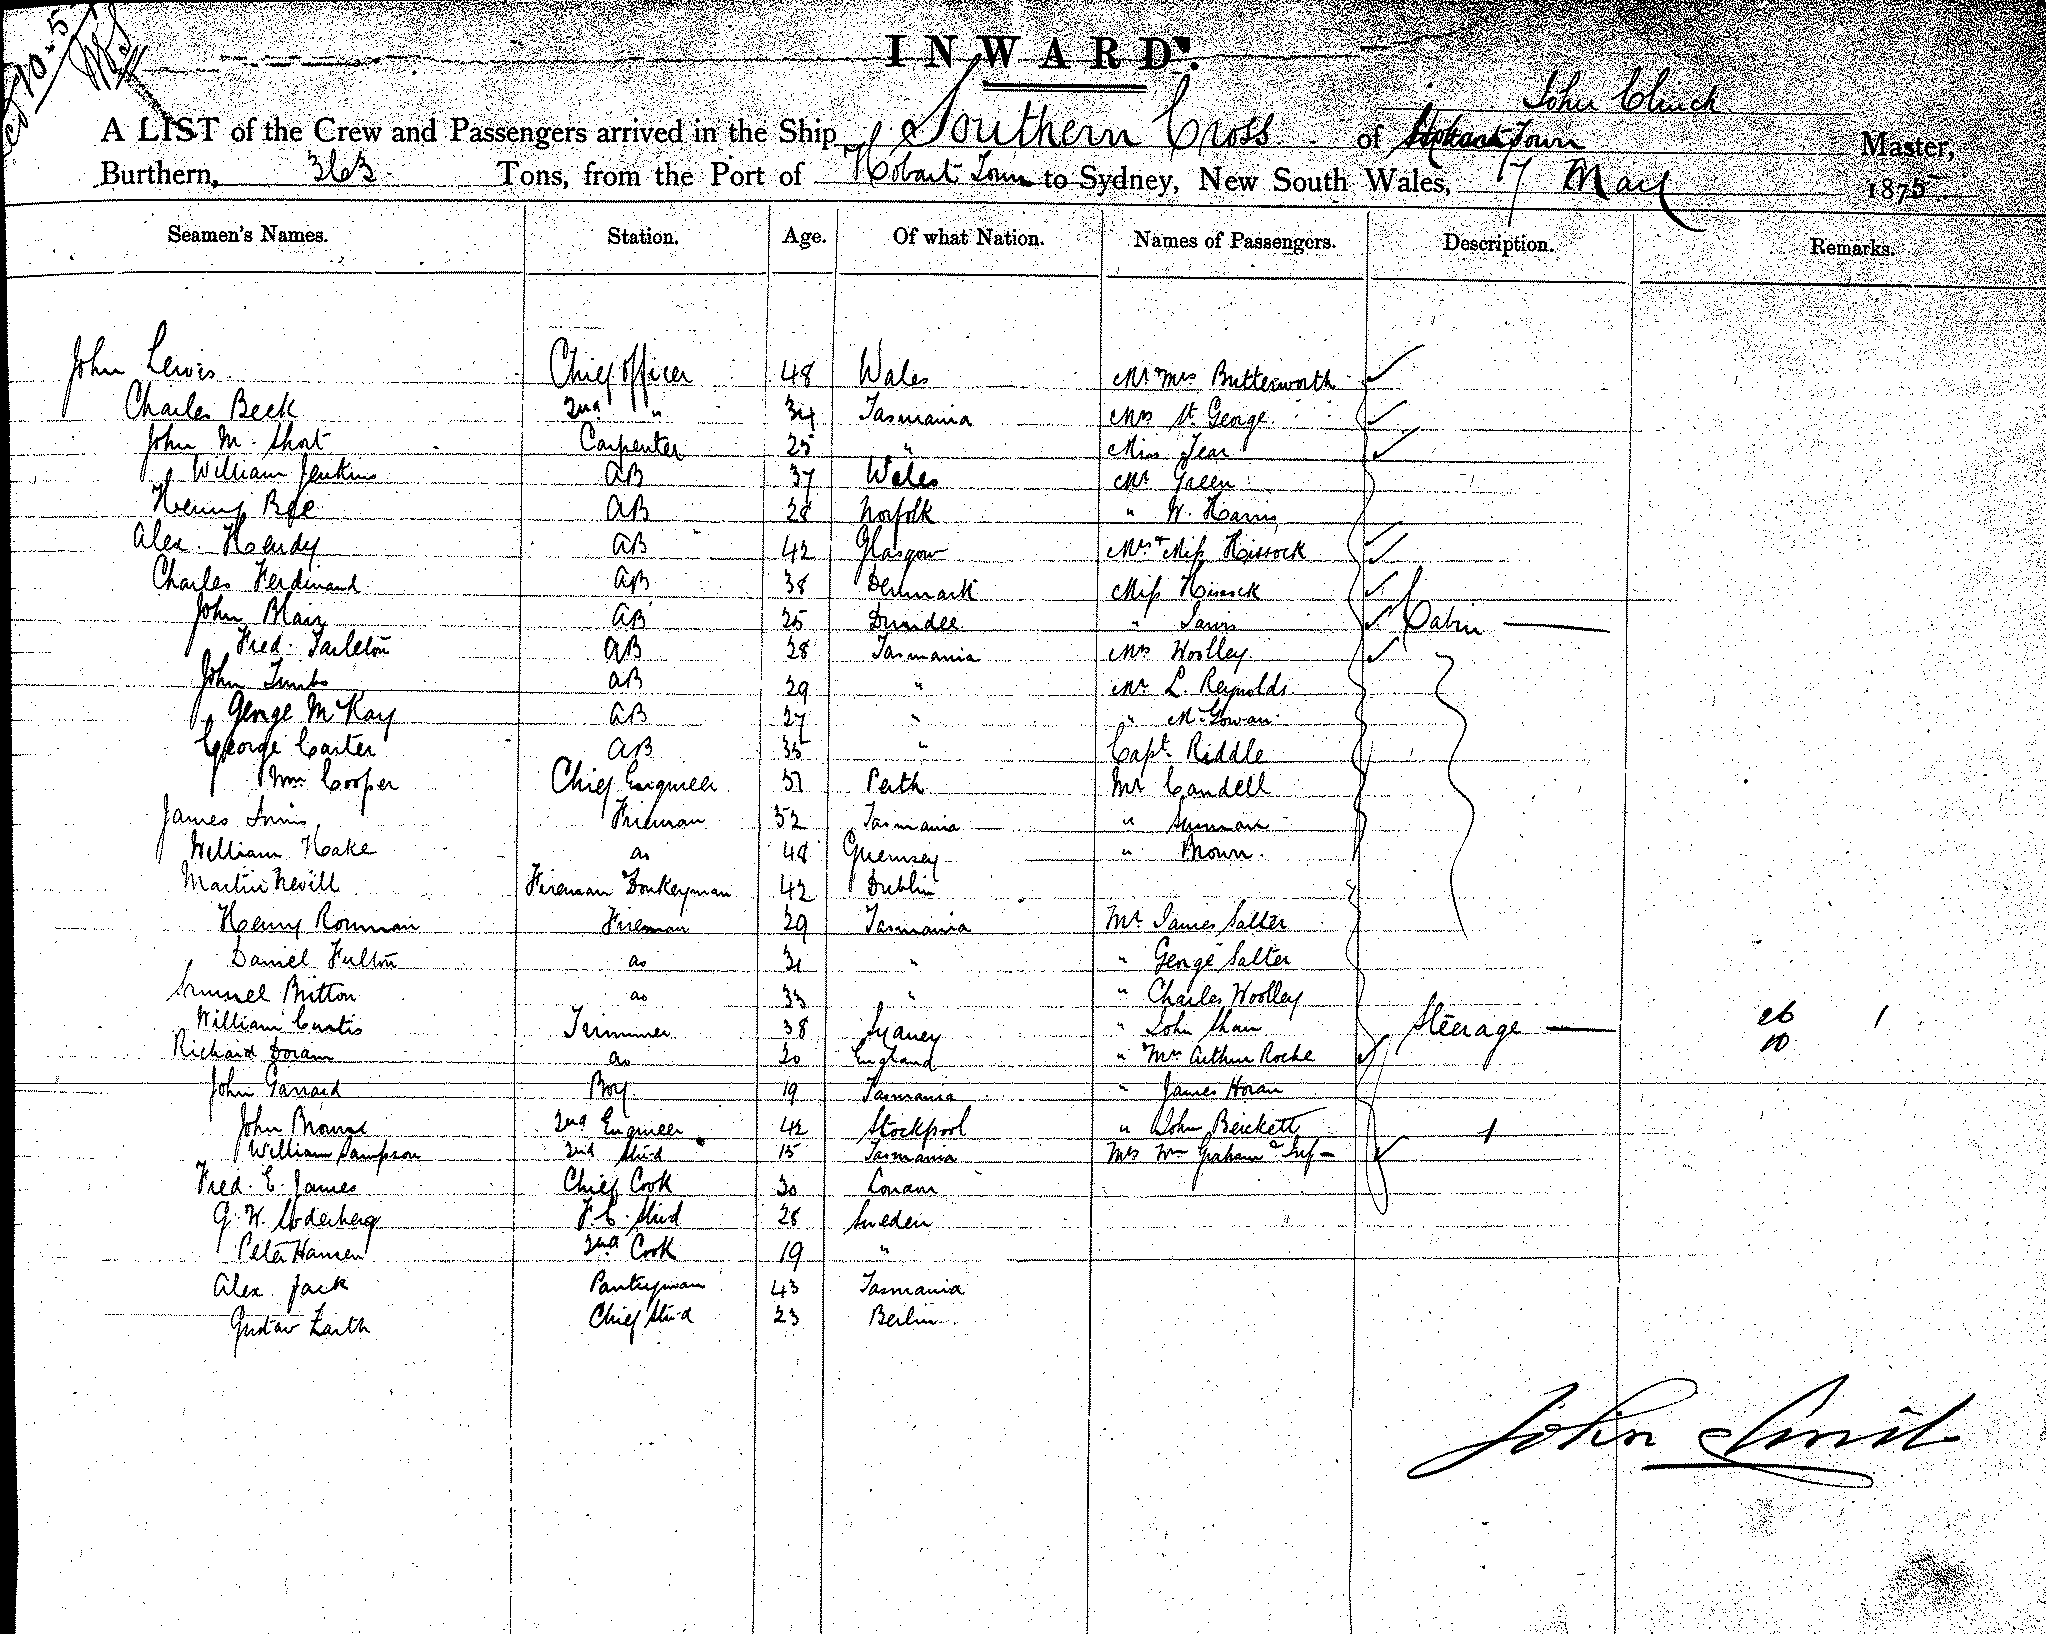 INWARD.
John Clinch
A LIST of the Crew and Passengers arrived in the Ship Southern Cross of Hobart Town Master,
Burthern, 363 Tons, from the Port of Hobart Town to Sydney, New South Wales, 7 May 1875
Seamen's Names. Station. Age. Of what Nation. Names of Passengers. Description. Remarks.
John Lewis Chief Officer 48 Wales Mr & Mrs Butterworth
Charles Beck 2nd " 34 Tasmania Mrs St. George
John M. Short Carpenter 25 " Miss
William Jenkins AB 37 Wales Mr Green
Henry AB 28 Norfolk " W. Harris
Alex. Hendy AB 42 Glasgow Mrs & Miss Hissock
Charles Ferdinand AB 38 Denmark Miss Hissock
John Blair AB 25 Dundee " Cabin
Fred. Tarleton AB 28 Tasmania Mrs Woolley
John AB 29 " Mr L. Reynolds
George McKay AB 27 " " McGowan
George Carter AB 35 " Capt. Riddle
Wm. Cooper Chief Engineer 37 Perth Mr Candell
James Fireman 52 Tasmania "
William Hake do 48 Guernsey " Brown
Martin Nevill Fireman & Donkeyman 42 Dublin
Henry Fireman 29 Tasmania Mr James Salter
Daniel Fulton do 31 " " George Salter
Samuel Britton do 33 " " Charles Woolley
William Curtis Trimmer 38 Sydney " John Shaw Steerage 26 1
Richard Doran do 20 England " Mrs Arthur Roche 10
John Garrard Boy 19 Tasmania " James Horan
John 2nd Engineer 42 Stockpool " John Beckett 1
William Sampson 2nd Stwd 15 Tasmania Mrs Wm Graham & Inf
Fred. E. James Chief Cook 30 London
G. W. Soderberg F.C. Stwd 28 Sweden
Peter Hansen 2nd Cook 19 "
Alex. Jack Pantryman 43 Tasmania
Gustav Chief Stwd 23 Berlin
John